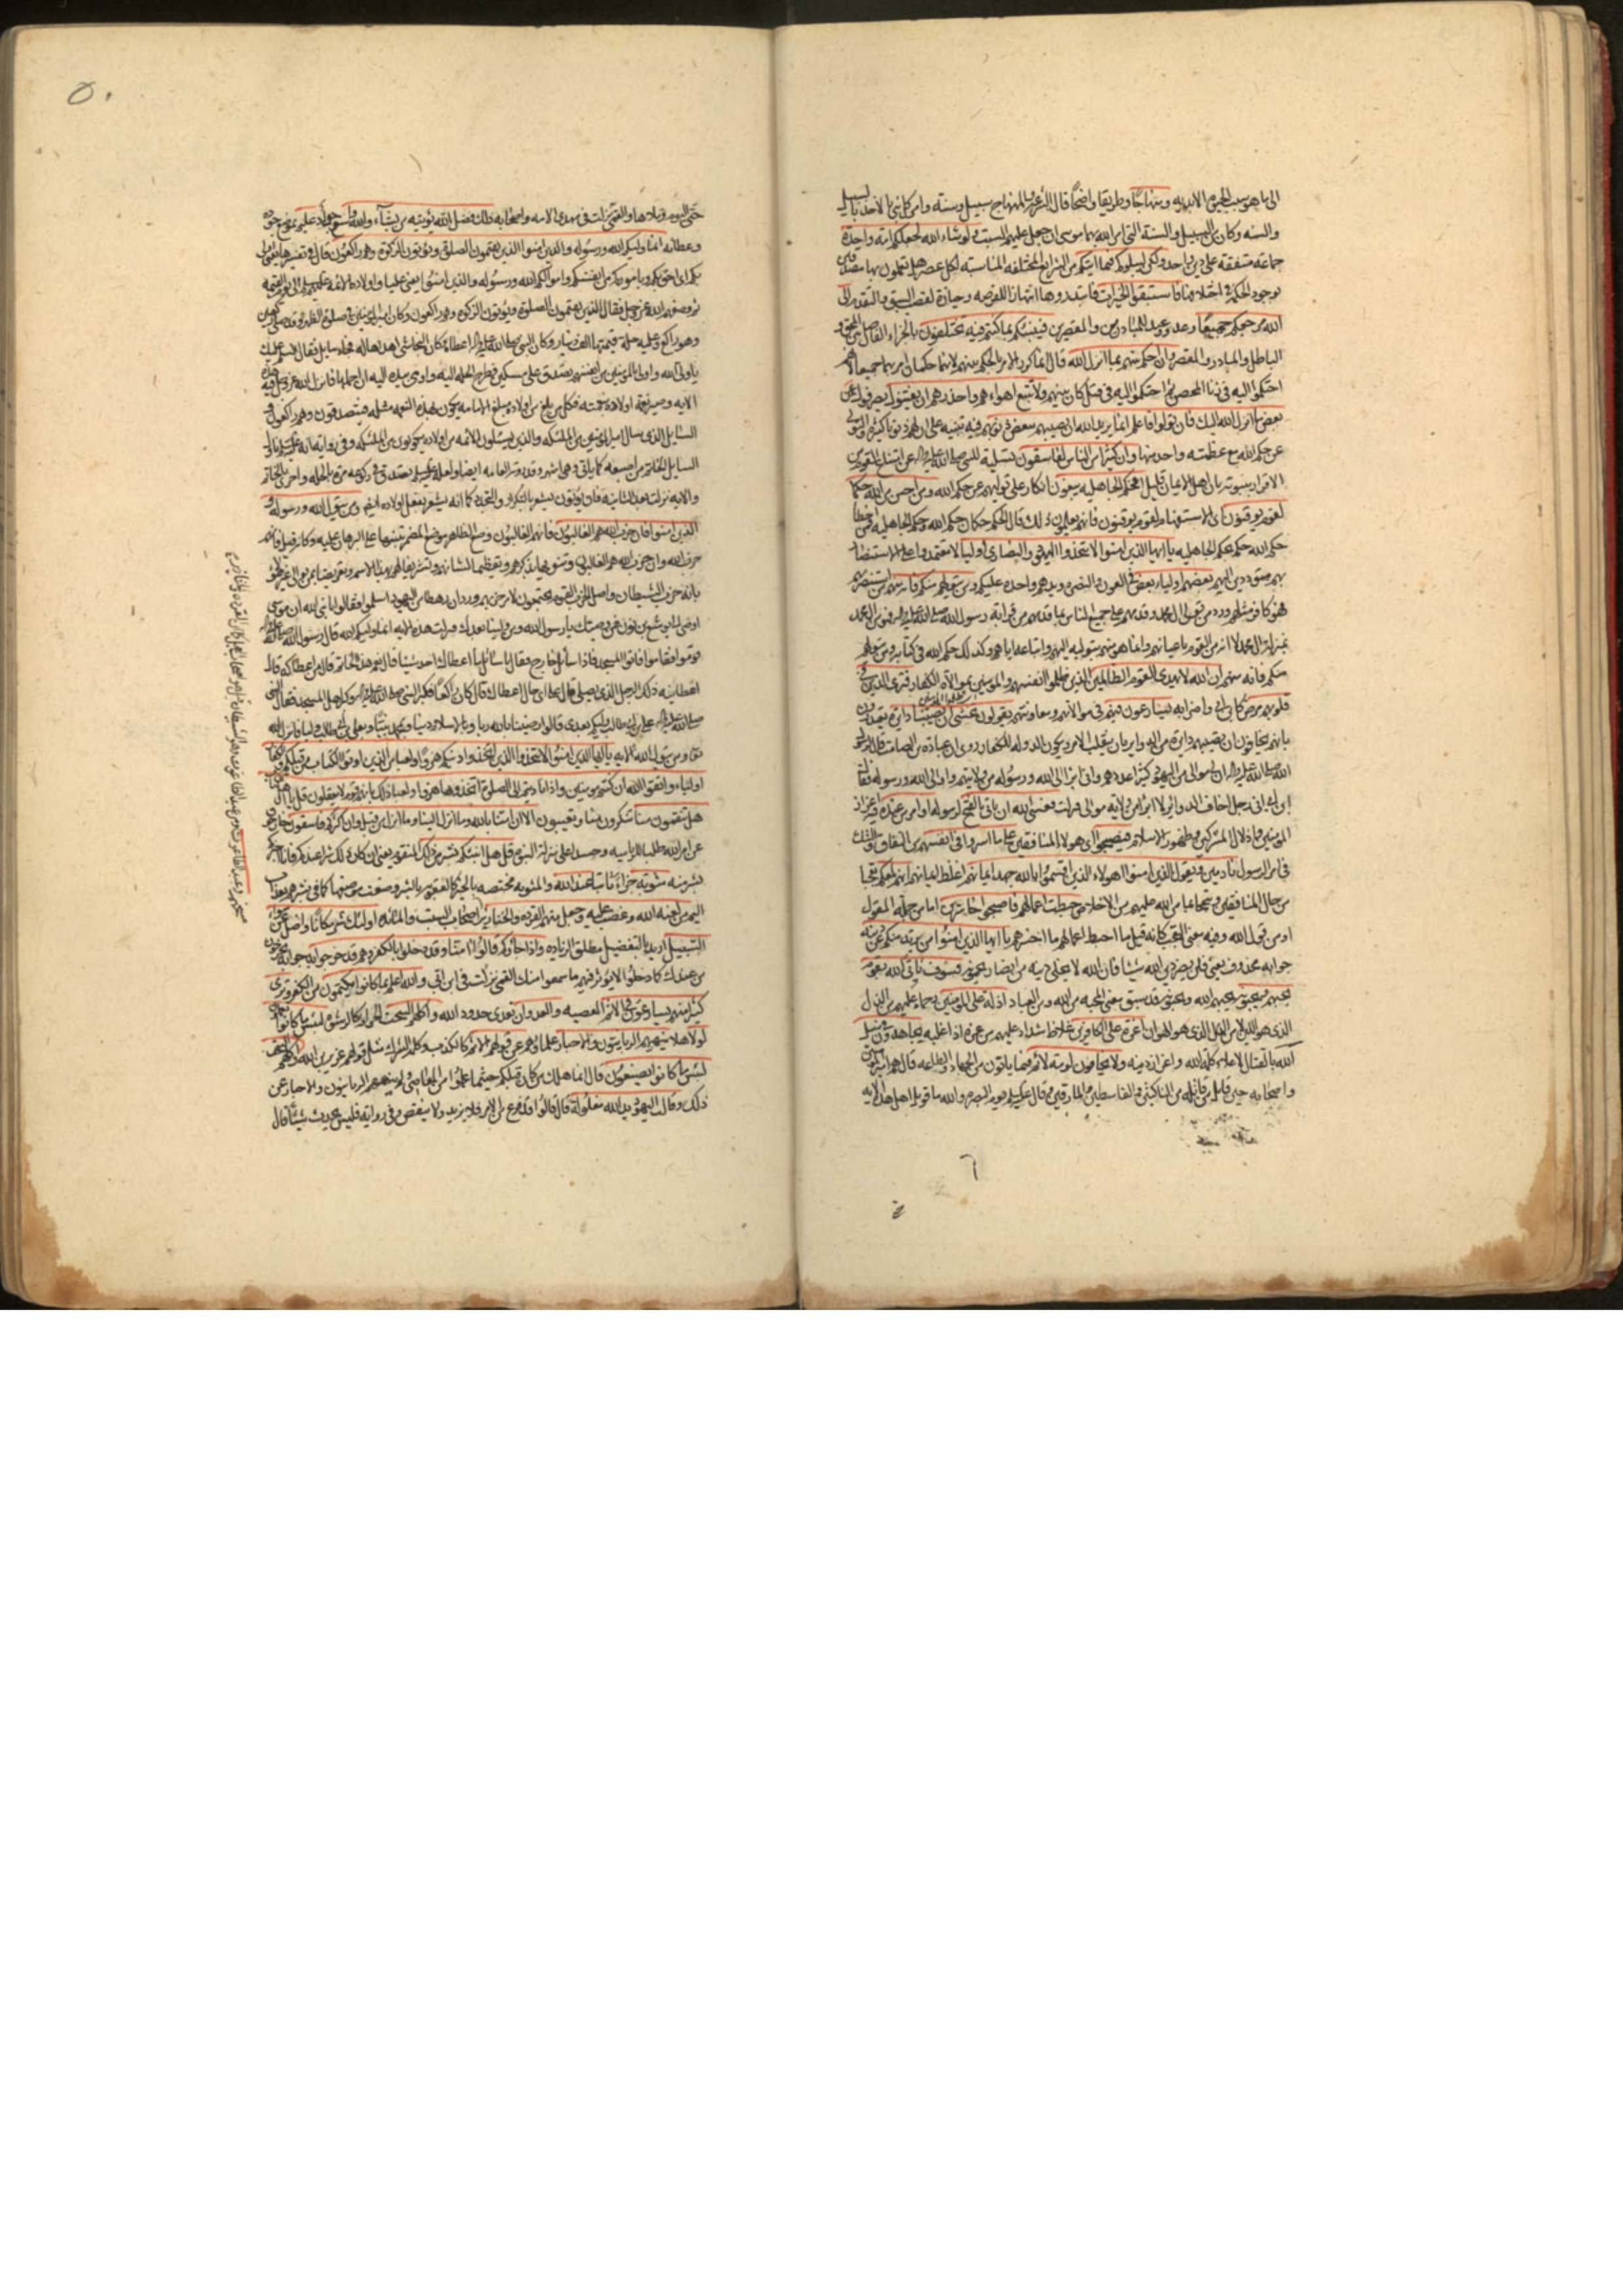 الى ما هو سبب الحيوة الابديه ومنهاجا وطريقا واضحا قال الشرعة والمنهاج سبيل وسنة وامر كل نبي بالاخذ بالسبيل
والسنه وكان من السبيل والسنة التي امر الله بها موسى ان جعل عليهم السبت ولو شاء الله لجعلكم امة واحدة
جماعة متفقة على دين واحد ولكن ليبلوكم فيما اتيكم من الشرايع المختلفه المناسبة لكل عصر هل تعملون بها مصدقين
بوجود الحكمة في اختلافها فاستبقوا الخيرات فابتدروها انتهازا للفرصه وحيازة لفضل السبق والتقدم الى
الله مرجعكم جميعا وعد ووعيد للمبادرين والمقصرين فينبئكم بما كنتم فيه تختلفون بالجزاء الفاصل بين المحق و
الباطل والمبادر والمقصر وان احكم بينهم بما انزل الله قال انما كرر الامر بالحكم بينهم لانهما حكمان امر بهما جميعا لانهم
احتكموا اليه في زنا المحصن ثم احتكموا اليه في قتل كان بينهم ولا تتبع اهواءهم واحذرهم ان يفتنوك يصرفوك عن
بعض ما انزل الله اليك فان تولوا فاعلم انما يريد الله ان يصيبهم ببعض ذنوبهم فيه تنبيه على ان لهم ذنوبا كثيرة والتولي
عن حكم الله مع عظمته واحد منها وان كثيرا من الناس لفاسقون تسلية للنبي صلى الله عليه واله عن امتناع القوم من
الاقرار بنبوته بان اهل الايمان قليل افحكم الجاهليه يبغون انكار على توليهم عن حكم الله ومن احسن من الله حكما
لقوم يوقنون اي الاستفهام لقوم يوقنون فانهم يعلمون ذلك قال الحكم حكمان حكم الله وحكم الجاهليه فمن اخطا
حكم الله حكم بحكم الجاهليه يا ايها الذين امنوا لا تتخذوا اليهود والنصارى اولياء لا تعتمدوا على الاستنصار
بهم متوددين اليهم بعضهم اولياء بعض في العون والنصره ويدهم واحده عليكم ومن يتولهم منكم فانه منهم من استنصرهم
فهو كافر مثلهم
منكم فانه منهم ان الله لا يهدي القوم الظالمين الذين ظلموا انفسهم والمومنين بموالاة الكفار فترى الذين في
قلوبهم مرض كابن ابي واضرابه يسارعون فيهم في موالاتهم ومعاونتهم يقولون نخشى ان تصيبنا دايرة يعتذرون
بانهم يخافون ان يصيبهم دايرة من دواير الزمان بان ينقلب الامر ويكون الدوله للكفار روى ان عبادة بن الصامت قال لرسول
الله صلى الله عليه واله ان لي موالى من اليهود كثيرا عددهم واني ابرا الى الله ورسوله من ولايتهم واوالى الله ورسوله فقال
ابن ابي اني رجل اخاف الدواير لا ابرا من ولاية موالى فنزلت فعسى الله ان ياتي بالفتح لرسوله او امر من عنده فيه اعزاز
المومنين واذلال المشركين وظهور الاسلام فيصبحوا اي هؤلاء المنافقين على ما اسروا في انفسهم من النفاق والشك
في امر الرسول نادمين ويقول الذين امنوا اهولاء الذين اقسموا بالله جهد ايمانهم اغلظ ايمانهم انهم لمعكم تعجبا
من حال المنافقين وتبجحا بما من الله عليهم من الاخلاص حبطت اعمالهم فاصبحوا خاسرين اما من جملة المقول
او من قول الله وفيه معنى التعجب كانه قيل ما احبط اعمالهم ما اخسرهم يا ايها الذين امنوا من يرتد منكم عن دينه
جوابه محذوف يعني فلن يضر دين الله شيئا فان الله لا يخلي دينه من انصار يحمونه فسوف ياتي الله بقوم
يحبهم ويحبونه يحبهم الله ويحبونه قد سبق معنى المحبه من الله ومن العباد اذلة على المومنين رحماء عليهم من الذل
الذي هو اللين لا من الذل الذي هو الهوان اعزة على الكافرين غلاظ شداد عليهم من عزه اذا غلبه يجاهدون في سبيل
الله بالقتال لاعلاء كلمة الله واعزاز دينه ولا يخافون لومة لائم فيما ياتون من الجهاد والطاعه قال هم امير المومنين
واصحابه حين قاتل من قاتله من الناكثين والقاسطين والمارقين وقال علي عليه السلم يوم البصره والله ما قوتل اهل هذه الايه
٥٠
حتى اليوم وتلاها والقمي نزلت في مهدي الامه واصحابه ذلك فضل الله يؤتيه من يشاء والله واسع جواد عليم بموضع جوده
وعطائه انما وليكم الله ورسوله والذين امنوا الذين يقيمون الصلوة ويؤتون الزكوة وهم راكعون قال في تفسيرها يعني اولى
بكم اي احق بكم وباموركم من انفسكم واموالكم الله ورسوله والذين امنوا يعني عليا واولاده الائمة عليهم السلم الى يوم القيمة
ثم وصفهم الله عز وجل فقال الذين يقيمون الصلوة ويؤتون الزكوة وهم راكعون وكان امير المومنين في صلوة الظهر وقد صلى ركعتين
وهو راكع وعليه حلة قيمتها الف دينار وكان النبي صلى الله عليه واله اعطاه وكان النجاشي اهداها له فجاء سايل فقال السلم عليك
يا ولي الله واولى بالمومنين من انفسهم تصدق على مسكين فطرح الحلة اليه واومى بيده اليه ان احملها فانزل الله عز وجل فيه هذه
الايه وصير نعمة اولاده بنعمته فكل من بلغ من اولاده مبلغ الامامه يكون بهذه النعمه مثله فيتصدقون وهم راكعون و
السائل الذي سال امير المومنين من الملئكه والذين يسئلون الائمه من اولاده يكونون من الملئكه
والايه نزلت بعد الثانية فان يؤتون يشعر بالتكرار والتجدد كما انه يشعر بفعل اولاده ايضا ومن يتول الله ورسوله و
الذين امنوا فان حزب الله هم الغالبون فانهم الغالبون وضع الظاهر موضع المضمر تنبيها على البرهان عليه وكانه قيل فانهم
حزب الله وان حزب الله هم الغالبون وتنويها بذكرهم وتعظيما لشانهم وتشريفا لهم بهذا الاسم وتعريضا بمن يوالي غير هؤلاء
بانه حزب الشيطان واصل الحزب القوم يجتمعون لامر حزبهم ورد ان رهطا من اليهود اسلموا فقالوا يا نبي الله ان موسى
اوصى الى يوشع بن نون فمن وصيك يا رسول الله ومن ولينا بعدك فنزلت هذه الايه انما وليكم الله قال رسول الله صلى الله عليه واله
قوموا فقاموا فاتوا المسجد فاذا سائل خارج فقال يا سائل ما اعطاك احد شيئا قال نعم هذا الخاتم قال من اعطاكه قال
اعطانيه ذلك الرجل الذي يصلي قال على اي حال اعطاك قال كان راكعا فكبر النبي صلى الله عليه واله وكبر اهل المسجد فقال النبي
صلى الله عليه واله علي بن ابي طالب وليكم بعدي قالوا رضينا بالله ربا وبالاسلام دينا وبمحمد نبيا وبعلي بن ابي طالب وليا فانزل الله
ومن يتول الله الايه يا ايها الذين امنوا لا تتخذوا الذين اتخذوا دينكم هزوا ولعبا من الذين اوتوا الكتاب من قبلكم والكفار
اولياء واتقوا الله ان كنتم مومنين واذا ناديتم الى الصلوة اتخذوها هزوا ولعبا ذلك بانهم قوم لا يعقلون قل يا اهل الكتاب
هل تنقمون منا تنكرون منا وتعيبون الا ان امنا بالله وما انزل الينا وما انزل من قبل وان اكثركم فاسقون خارجون
عن امر الله طلبا للرياسه وحسدا على منزلة النبوة قل هل انبئكم بشر من ذلك المنقوم يعني ان كان ذلك شرا عندكم فانا اخبركم
بشر منه مثوبة جزاء ثابتا عند الله والمثوبه مختصه بالخير كالعقوبة بالشر وضعت موضعها كما في فبشرهم بعذاب
اليم من لعنه الله وغضب عليه وجعل منهم القردة والخنازير اصحاب السبت والمائده اولئك شر مكانا واضل عن سواء
السبيل اريد بالتفضيل مطلق الزياده واذا جاؤكم قالوا امنا وقد دخلوا بالكفر وهم قد خرجوا به يخرجون
من عندك كما دخلوا لا يؤثر فيهم ما سمعوا منك القمي نزلت في ابن ابي والله اعلم بما كانوا يكتمون من الكفر وترى
كثيرا منهم يسارعون في الاثم المعصيه والعدوان تعدي حدود الله واكلهم السحت الحرام كالرشوة لبئس ما كانوا يعملون
لولا هلا ينهيهم الربانيون والاحبار علماؤهم عن قولهم الاثم كالكذب وكلمة الشرك مثل قولهم عزير ابن الله واكلهم السحت
لبئس ما كانوا يصنعون قال انما هلك من كان قبلكم حيثما عملوا من المعاصي ولم ينههم الربانيون والاحبار عن
ذلك وقالت اليهود يد الله مغلولة قال قالوا قد فرغ من الامر فلا يزيد ولا ينقص وفي رواية فليس يحدث شيئا قال